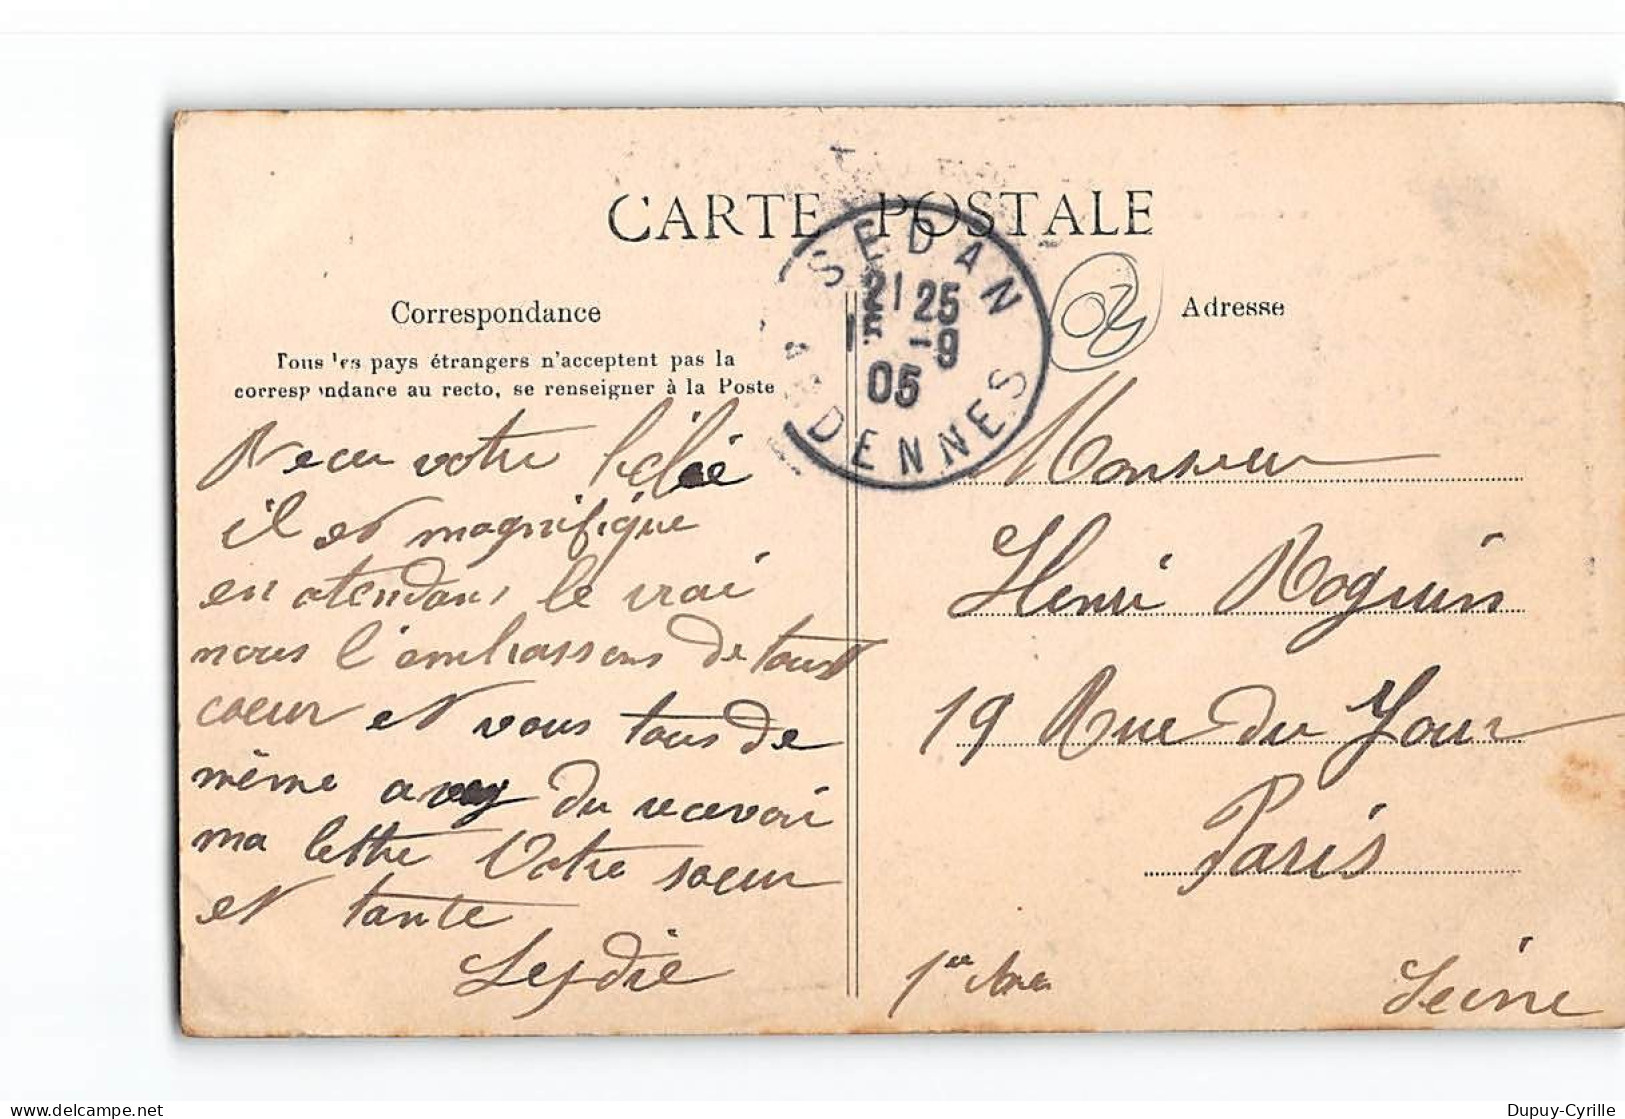 CARTE POSTALE
SEDAN
21 25
1E -9
05
ARDENNES
02
Correspondance
Tous les pays étrangers n'acceptent pas la
correspondance au recto, se renseigner à la Poste
Adresse
Recu votre bébé
il et magnifique
en atendans le vrai
nous l'embrassons de tout
coeur et vous tous de
même avez du recevoir
ma lettre Votre soeur
et tante
Leydie
Monsieur
Henri Roguin
19 Rue du Jour
Paris
1er Arr
Seine
delcampe.net
Dupuy-Cyrille